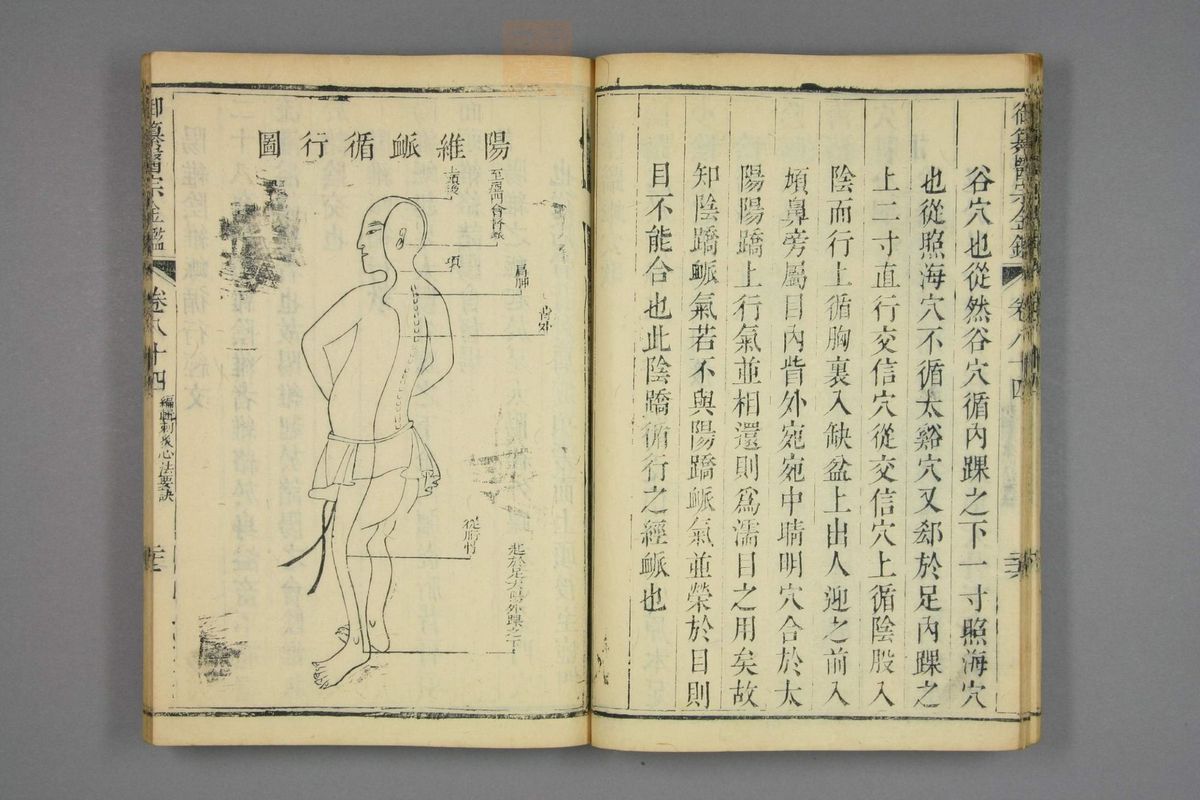 御纂醫宗金鑑
卷八十四
谷穴也從然谷穴循內踝之下一寸照海穴
也從照海穴不循太谿穴又郄於足內踝之
上二寸直行交信穴從交信穴上循陰股入
陰而行上循胸裏入缺盆上出人迎之前入
頄鼻旁屬目內眥外宛宛中睛明穴合於太
陽陽蹻上行氣並相還則為濡目之用矣故
知陰蹻䘑氣若不與陽蹻䘑氣並榮於目則
目不能合也此陰蹻循行之經䘑也
陽維䘑循行圖
至瘂門會督䘑
上頭後
項
肩胛
背外
從胻骨
起於足太陽外踝之下
御纂醫宗金鑑
卷八十四
編輯刺灸心法要訣